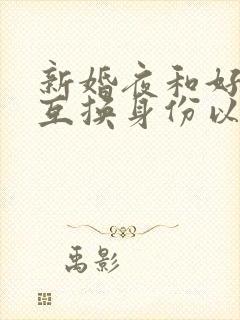 新婚夜和好
互换身份以
禹影